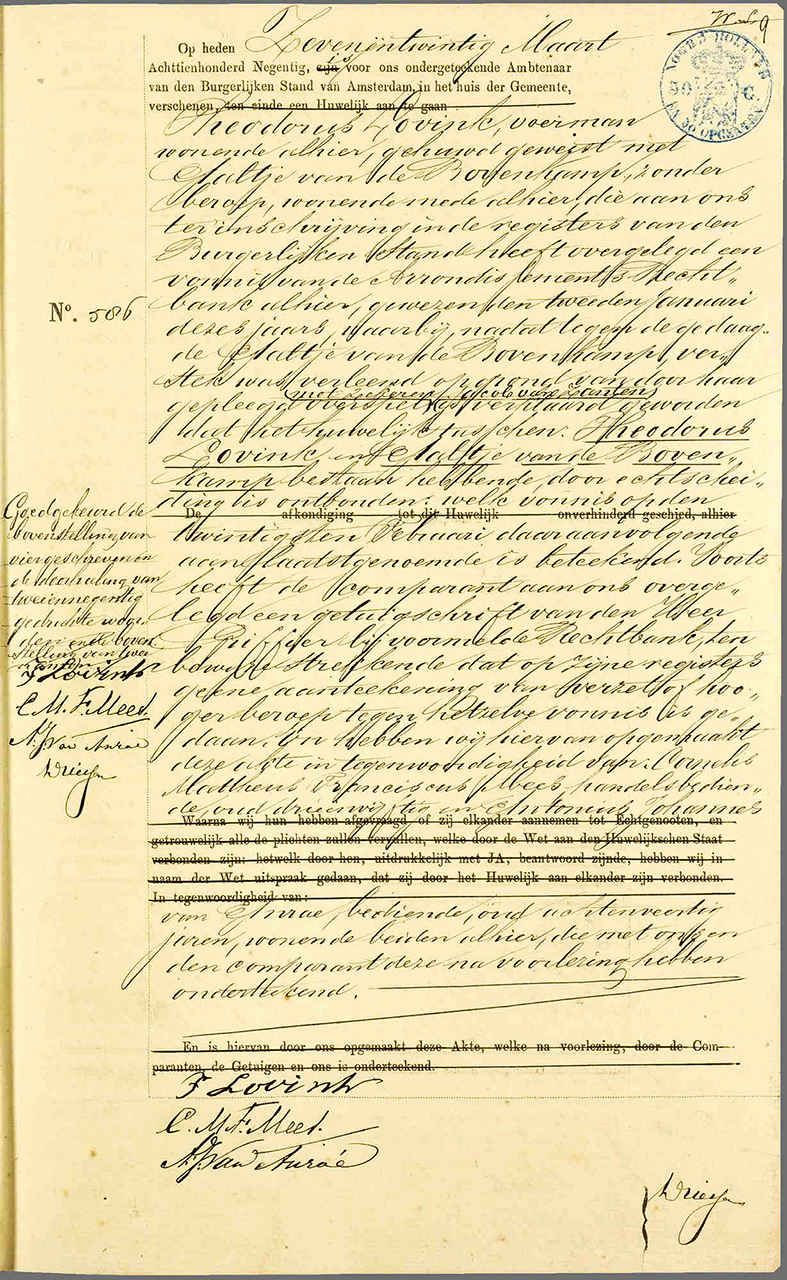 Op heden Zevenëntwintig Maart
Achttienhonderd Negentig, zijn is voor ons ondergeteekende Ambtenaar
van den Burgerlijken Stand van Amsterdam, in het huis der Gemeente,
verschenen, ten einde een Huwelijk aan te gaan
Theodorus Lovink, voerman
wonende alhier, gehuwd geweest met
Aaltje van de Bovenkamp, zonder
beroep, wonende mede alhier, die aan ons
ter inschrijving in de registers van den
Burgerlijken Stand heeft overgelegd een
vonnis van de Arrondissements Recht„
No. 586
bank alhier, gewezen den tweeden Januari
dezes jaars, waarbij, nadat tegen de gedaag„
de Aaltje van de Bovenkamp, ver„
stek was verleend op grond van door haar
(met zekeren Jacob van Zanten)
gepleegd overspel is verklaard geworden
dat het huwelijk tusschen: Theodorus
Lovink en Aaltje van de Boven„
kamp bestaan hebbende, door echtschei„
ding is ontbonden: welk vonnis op den
De afkondiging tot dit Huwelijk onverhinderd geschied, alhier
twintigsten Februari daaraanvolgende
aan laatstgenoemde is beteekend. Voorts
heeft de comparant aan ons overge„
legd een getuigschrift van den Heer
Griffier bij voormelde Rechtbank, ten
bewijze strekkende dat op zijne registers
geene aanteekening van verzet of hoo„
ger beroep tegen hetzelve vonnis is ge„
daan. En hebben wij hiervan opgemaakt
deze akte in tegenwoordigheid van: Cornelis
Mattheus Franciscus Mees, handelsbedien„
de, oud drieenvijftig en Antonius Johannes
Waarna wij hun hebben afgevraagd of zij elkander aannemen tot Echtgenooten, en
getrouwelijk alle de plichten zullen vervullen, welke door de Wet aan den Huwelijkschen Staat
verbonden zijn: hetwelk door hen, uitdrukkelijk met JA, beantwoord zijnde, hebben wij in
naam der Wet uitspraak gedaan, dat zij door het Huwelijk aan elkander zijn verbonden.
In tegenwoordigheid van:
van Anrae, bediende, oud achtenveertig
jaren, wonende beiden alhier, die met ons en
den comparant deze na voorlezing hebben
onderteekend.
En is hiervan door ons opgemaakt deze Akte, welke na voorlezing, door de Com-
paranten, de Getuigen en ons is onderteekend.
T Lovink
C. M. F. Mees.
A. J. Van Anraé
Goedgekeurd de
bovenstelling van
vier geschreven en
de doorhaling van
tweeënnegentig
gedrukte woor„
den en de boven„
stelling van twee
T Lovink
C. M. F. Mees.
A. J. Van Anraé
NOORD HOLLAND
50 C.
EN 30 OPCENTEN